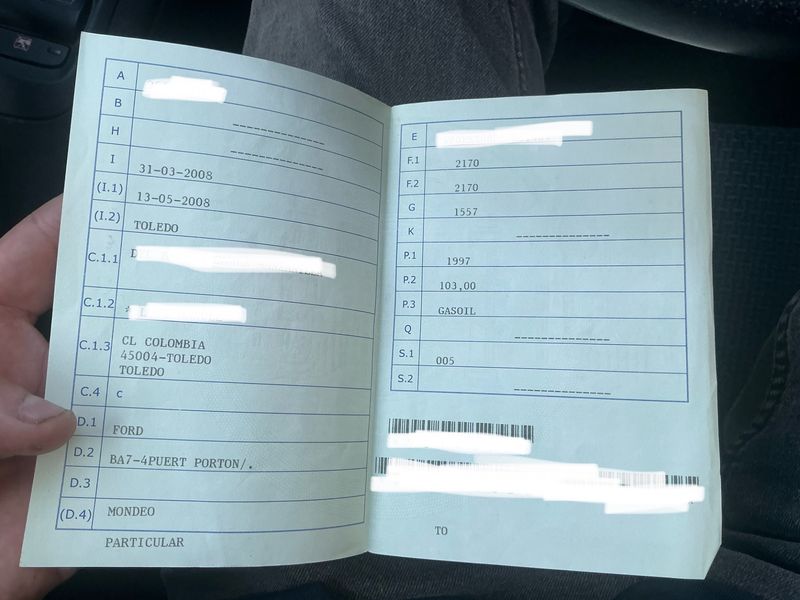 A
B
H ------------
I ------------
31-03-2008
(I.1) 13-05-2008
(I.2) TOLEDO
C.1.1
C.1.2
C.1.3 CL COLOMBIA
45004-TOLEDO
TOLEDO
C.4 c
D.1 FORD
D.2 BA7-4PUERT PORTON/.
D.3
(D.4) MONDEO
PARTICULAR
E
F.1 2170
F.2 2170
G 1557
K ------------
P.1 1997
P.2 103,00
P.3 GASOIL
Q ------------
S.1 005
S.2 ------------
TO